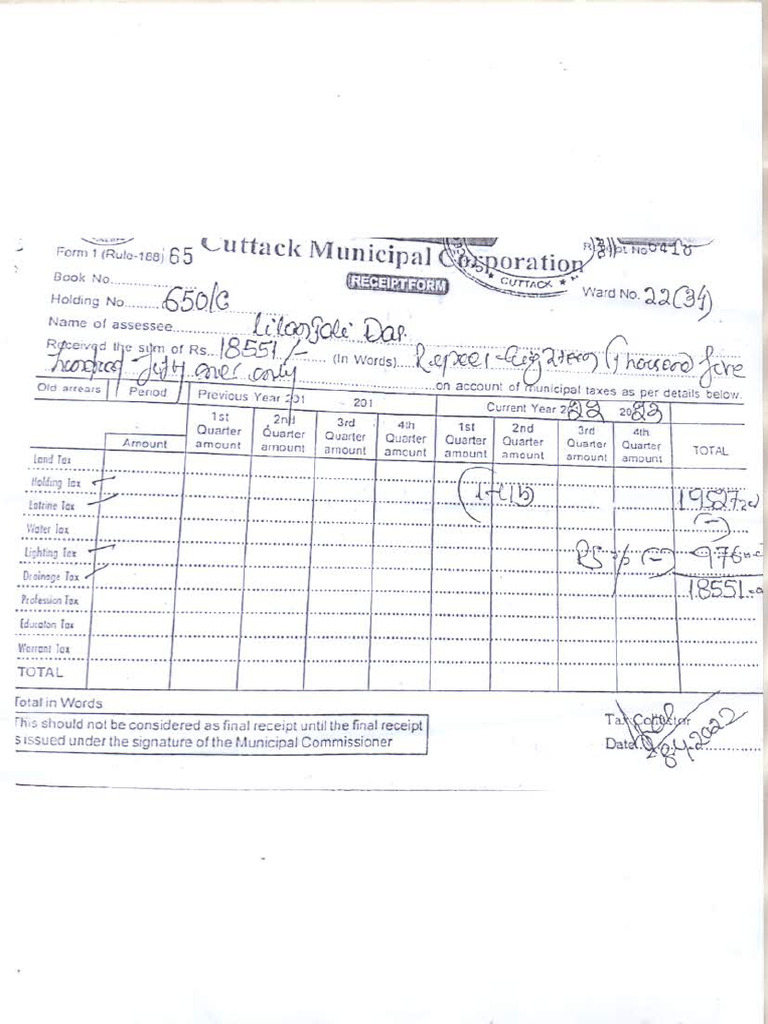 Cuttack Municipal Corporation
Form 1 (Rule-188) 65
Receipt No 0416
CUTTACK
RECEIPT FORM
Book No.
Holding No. 650/C
Ward No. 22(34)
Name of assessee Das.
Received the sum of Rs. 18551/- (In Words) Rupees Eighteen Thousand five
hundred fifty one only
on account of municipal taxes as per details below.
Old arrears Period Previous Year 201 201 Current Year 2022 2023
Amount 1st Quarter amount 2nd Quarter amount 3rd Quarter amount 4th Quarter amount 1st Quarter amount 2nd Quarter amount 3rd Quarter amount 4th Quarter amount TOTAL
Land Tax
Holding Tax
Latrine Tax 19527
Water Tax (-)
Lighting Tax 5% (-) 976
Drainage Tax 18551
Profession Tax
Educaton Tax
Warrant Tax
TOTAL
Total in Words
This should not be considered as final receipt until the final receipt
s issued under the signature of the Municipal Commissioner
Tax Collector
Date 28.4.2022